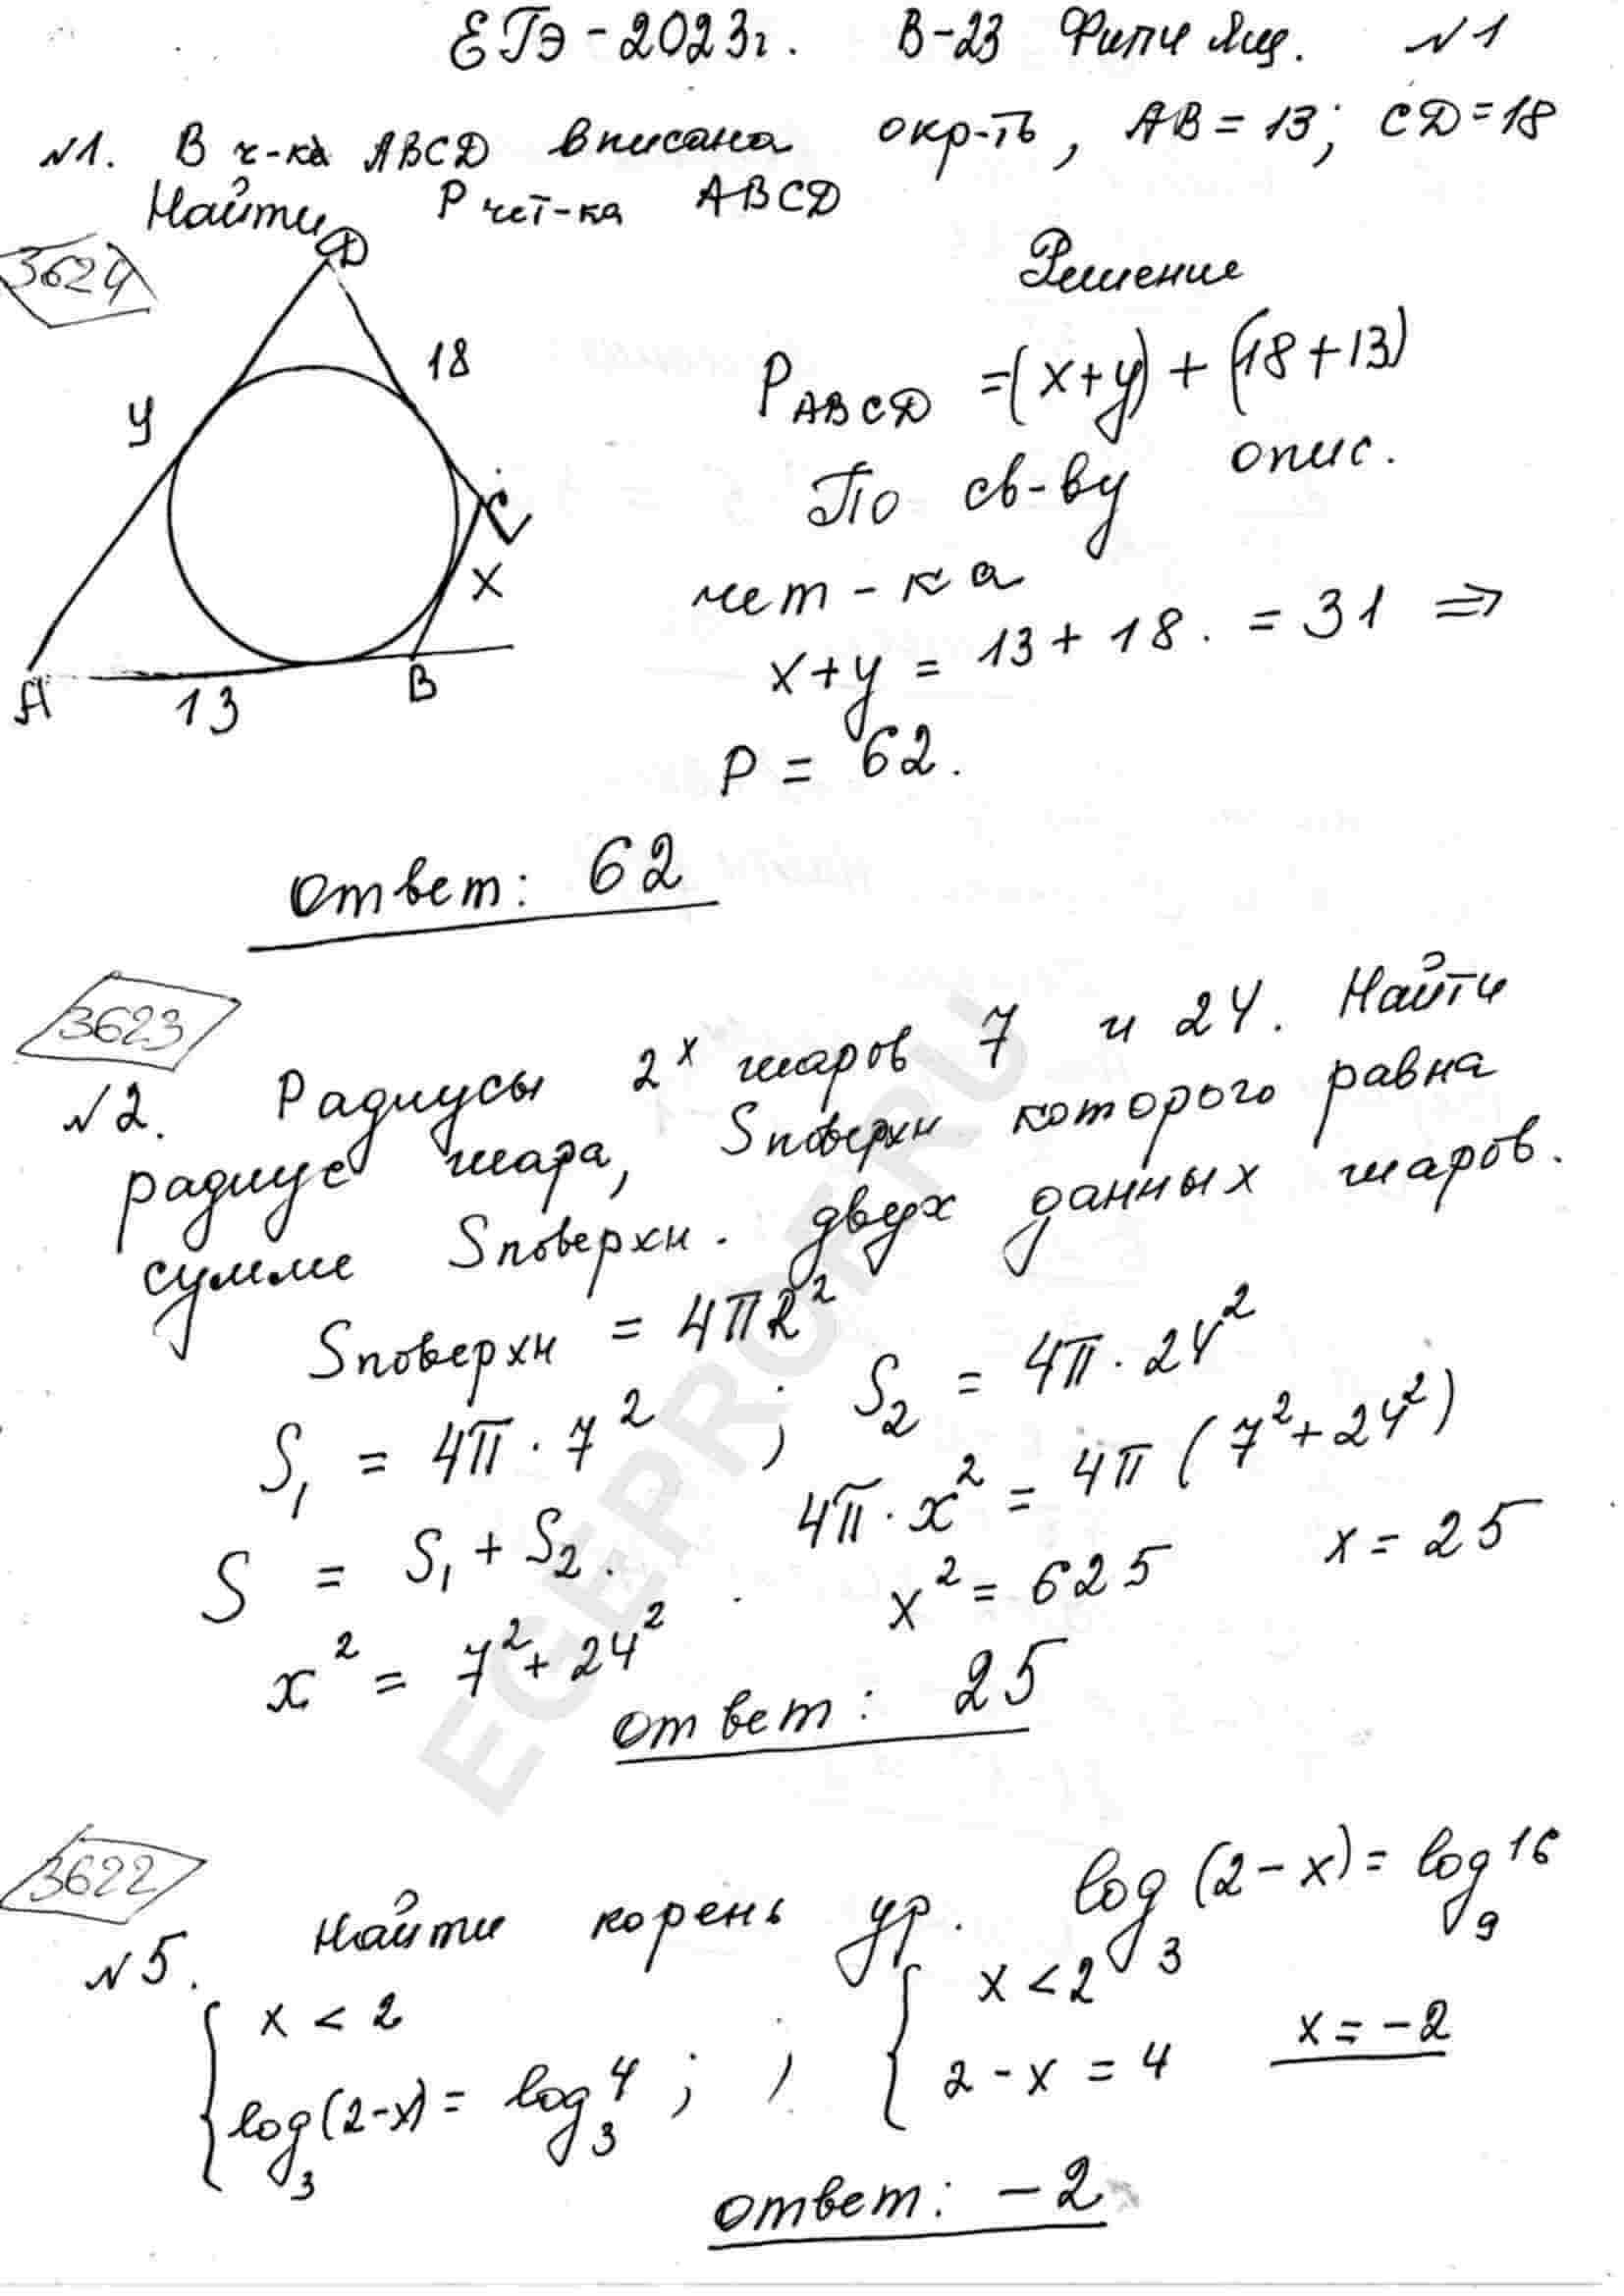 ЕГЭ-2023г. В-23 Фипи Ящ. №1
№1. В ч-ка ABCD вписана окр-ть, AB=13; CD=18
Найти P чет-ка ABCD
3624
D
Решение
18
y
P ABCD = (x+y) + (18+13)
По св-ву опис.
C
чет-ка
x
x+y = 13+18. = 31 ⇒
A
13
B
P = 62.
Ответ: 62
3623
№2. Радиусы 2х шаров 7 и 24. Найти
радиус шара, Sповерхн которого равна
сумме Sповерхн. двух данных шаров.
Sповерхн = 4πR²
S₁ = 4π·7² ; S₂ = 4π·24²
S = S₁ + S₂. 4π·x² = 4π(7²+24²)
x² = 7²+24² . x² = 625 x = 25
Ответ: 25
EGEPROF.RU
3622
№5. Найти корень ур. log₃(2-x) = log₉16
{ x < 2
log₃(2-x) = log₃4 ; ; { x < 2
2-x = 4 x = -2
Ответ: -2